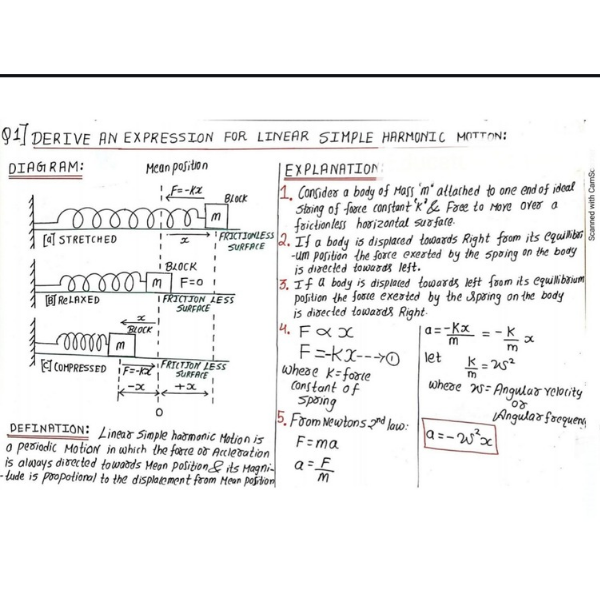 Q1] DERIVE AN EXPRESSION FOR LINEAR SIMPLE HARMONIC MOTION:
DIAGRAM:
Mean position
F=-Kx
BLOCK
m
[a] STRETCHED
x
FRICTIONLESS
SURFACE
BLOCK
m
F=0
[B] RELAXED
FRICTION LESS
SURFACE
x
BLOCK
m
[C] COMPRESSED
F=-Kx
FRICTION LESS
SURFACE
-x
+x
O
DEFINATION: Linear Simple harmonic Motion is
a periodic Motion in which the force or Acceleration
is always directed towards Mean Position & its Magni-
-tude is propotional to the displacement from Mean position
EXPLANATION:
1. Consider a body of Mass 'm' attached to one end of ideal
String of force constant 'K' & Free to Move over a
frictionless horizontal surface.
2. If a body is displaced towards Right from its equilibri
-um position the force exerted by the spring on the body
is directed towards left.
3. If a body is displaced towards left from its equilibrium
position the force exerted by the Spring on the body
is directed towards Right.
4. F ∝ x
F=-Kx---→①
where K=force
constant of
spring
5. From Newtons 2nd law:
F=ma
a=F/m
a=-Kx/m = -K/m x
let
K/m = ω²
where ω= Angular velocity
or
Angular frequen
a=-ω²x
Scanned with CamSc